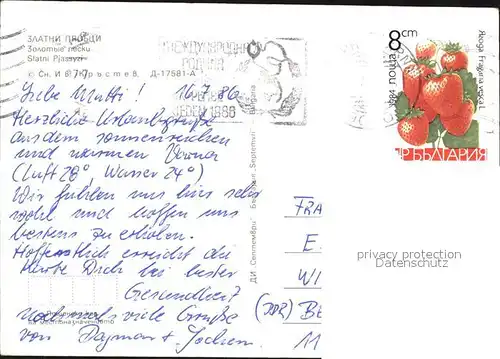 ЗЛАТНИ ПЯСЪЦИ
Золотые пески
Slatni Pjassyzi
© Сн. И в. К р ъ с т е в. Д-17581-А
МЕЖДУНАРОДНА
ГОДИНА
1986
8 cm
поща
1984
Ягода Fragaria vesca L.
НР БЪЛГАРИЯ
Liebe Mutti! 16.7.86
Herzliche Urlaubsgrüße
aus dem sonnenreichen
und warmen Varna
(Luft 28° Wasser 24°)
Wir fühlen uns hier sehr
wohl und hoffen uns
bestens zu erholen.
Hoffentlich erreicht die
Karte Dich bei bester
Gesundheit?
Nochmals viele Grüße
von Dagmar + Jochen
ДИ „Септември" България „Septemvri" Bulgaria
FRA
E.
WI
(DDR) BE
11
privacy protection
Datenschutz